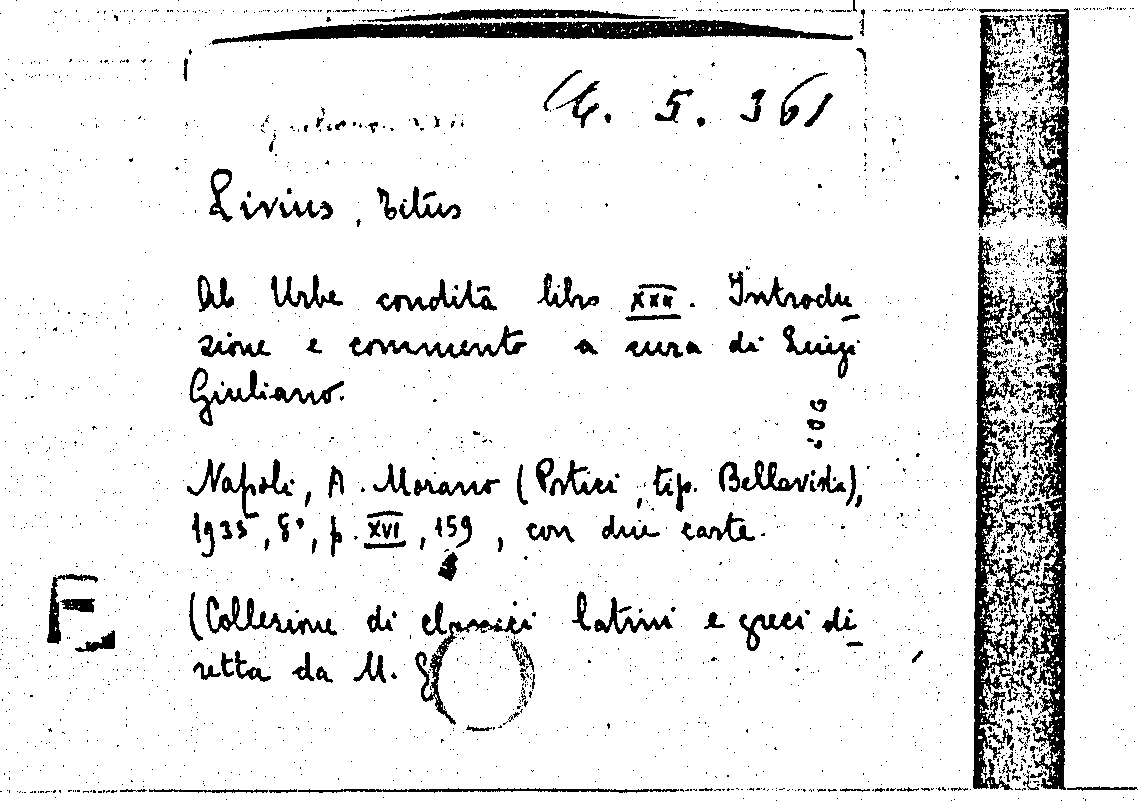 5. 361
Livius, Titus
Ab Urbe condita libro XXII. Introdu-
zione e commento a cura di Luigi
Giuliano.
Napoli, A. Morano (Portici, tip. Bellavista),
1935, 8°, p. XVI, 159, con due carte.
(Collezione di classici latini e greci di-
retta da M.